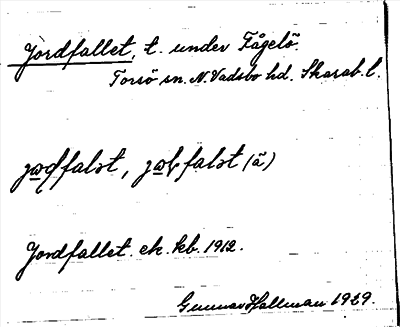 Jordfallet, t. under Fågelö.
Torsö sn. N. Vadsbo hd. Skarab. l.
falət, falət (ā)
Jordfallet. ek. kb. 1912.
Gunnar Hallman 1929.